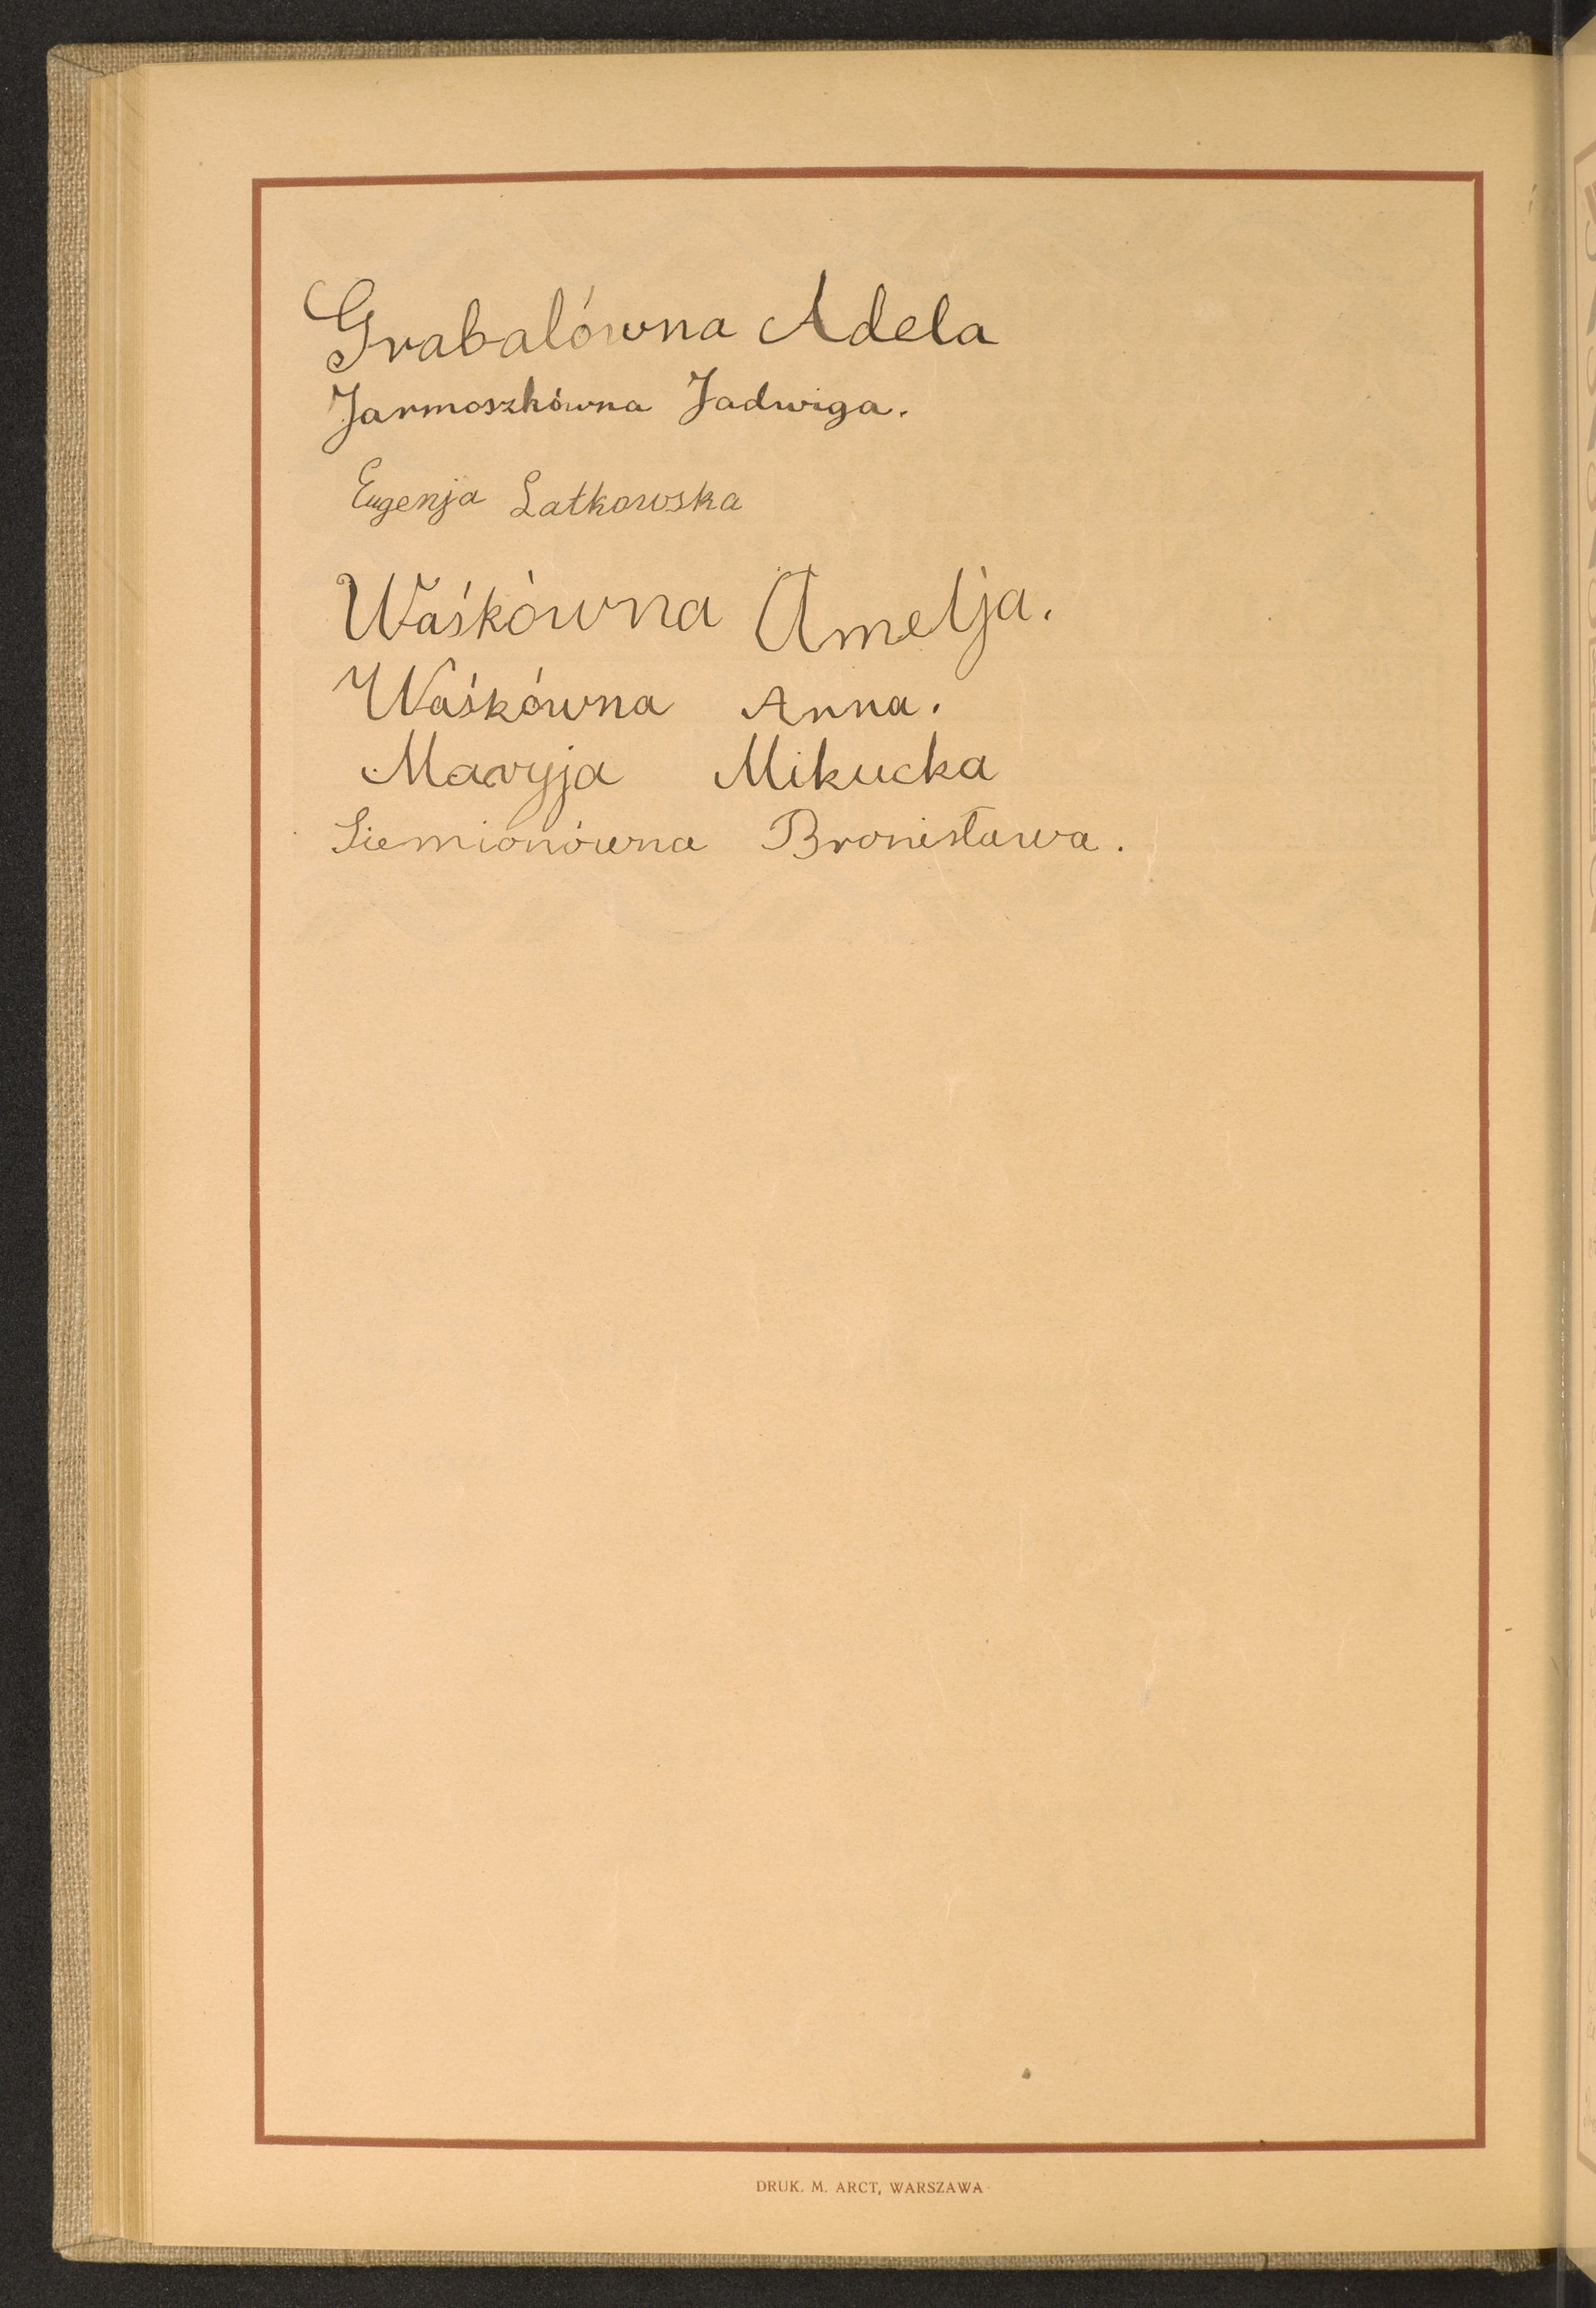 Grabalówna Adela
Jarmoszkówna Jadwiga.
Eugenja Latkowska
Waśkówna Amelja.
Waśkówna Anna.
Maryja Mikucka
Siemionówna Bronisława.
DRUK. M. ARCT, WARSZAWA